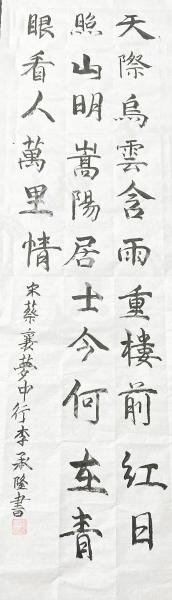 天際烏雲含雨重樓前紅日
照山明嵩陽居士今何在青
眼看人萬里情
宋蔡襄夢中行李承隆書